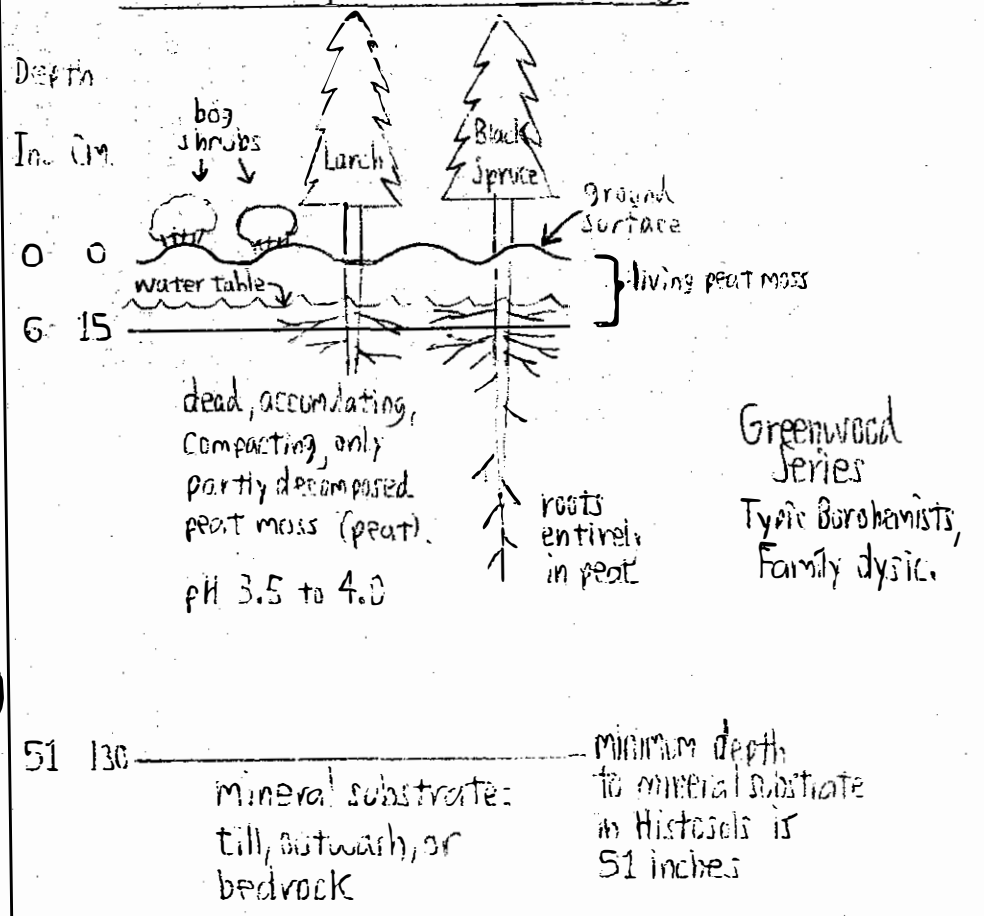 Depth
In. Cm.
bog
shrubs
Larch
Black
Spruce
ground
surface
0 0
water table
living peat moss
6 15
dead, accumulating,
compacting, only
partly decomposed
peat moss (peat).
pH 3.5 to 4.0
roots
entirely
in peat
Greenwood
Series
Typic Borohemists,
Family dysic.
51 130
mineral substrate:
till, outwash, or
bedrock
minimum depth
to mineral substrate
in Histosols is
51 inches